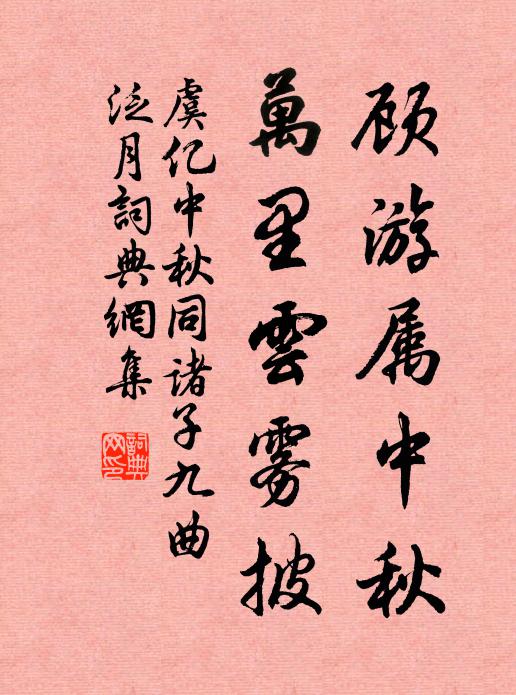 顾游属中秋
萬里雲雾披
虞亿中秋同诸子九曲
泛月詞典網集
詞典网印